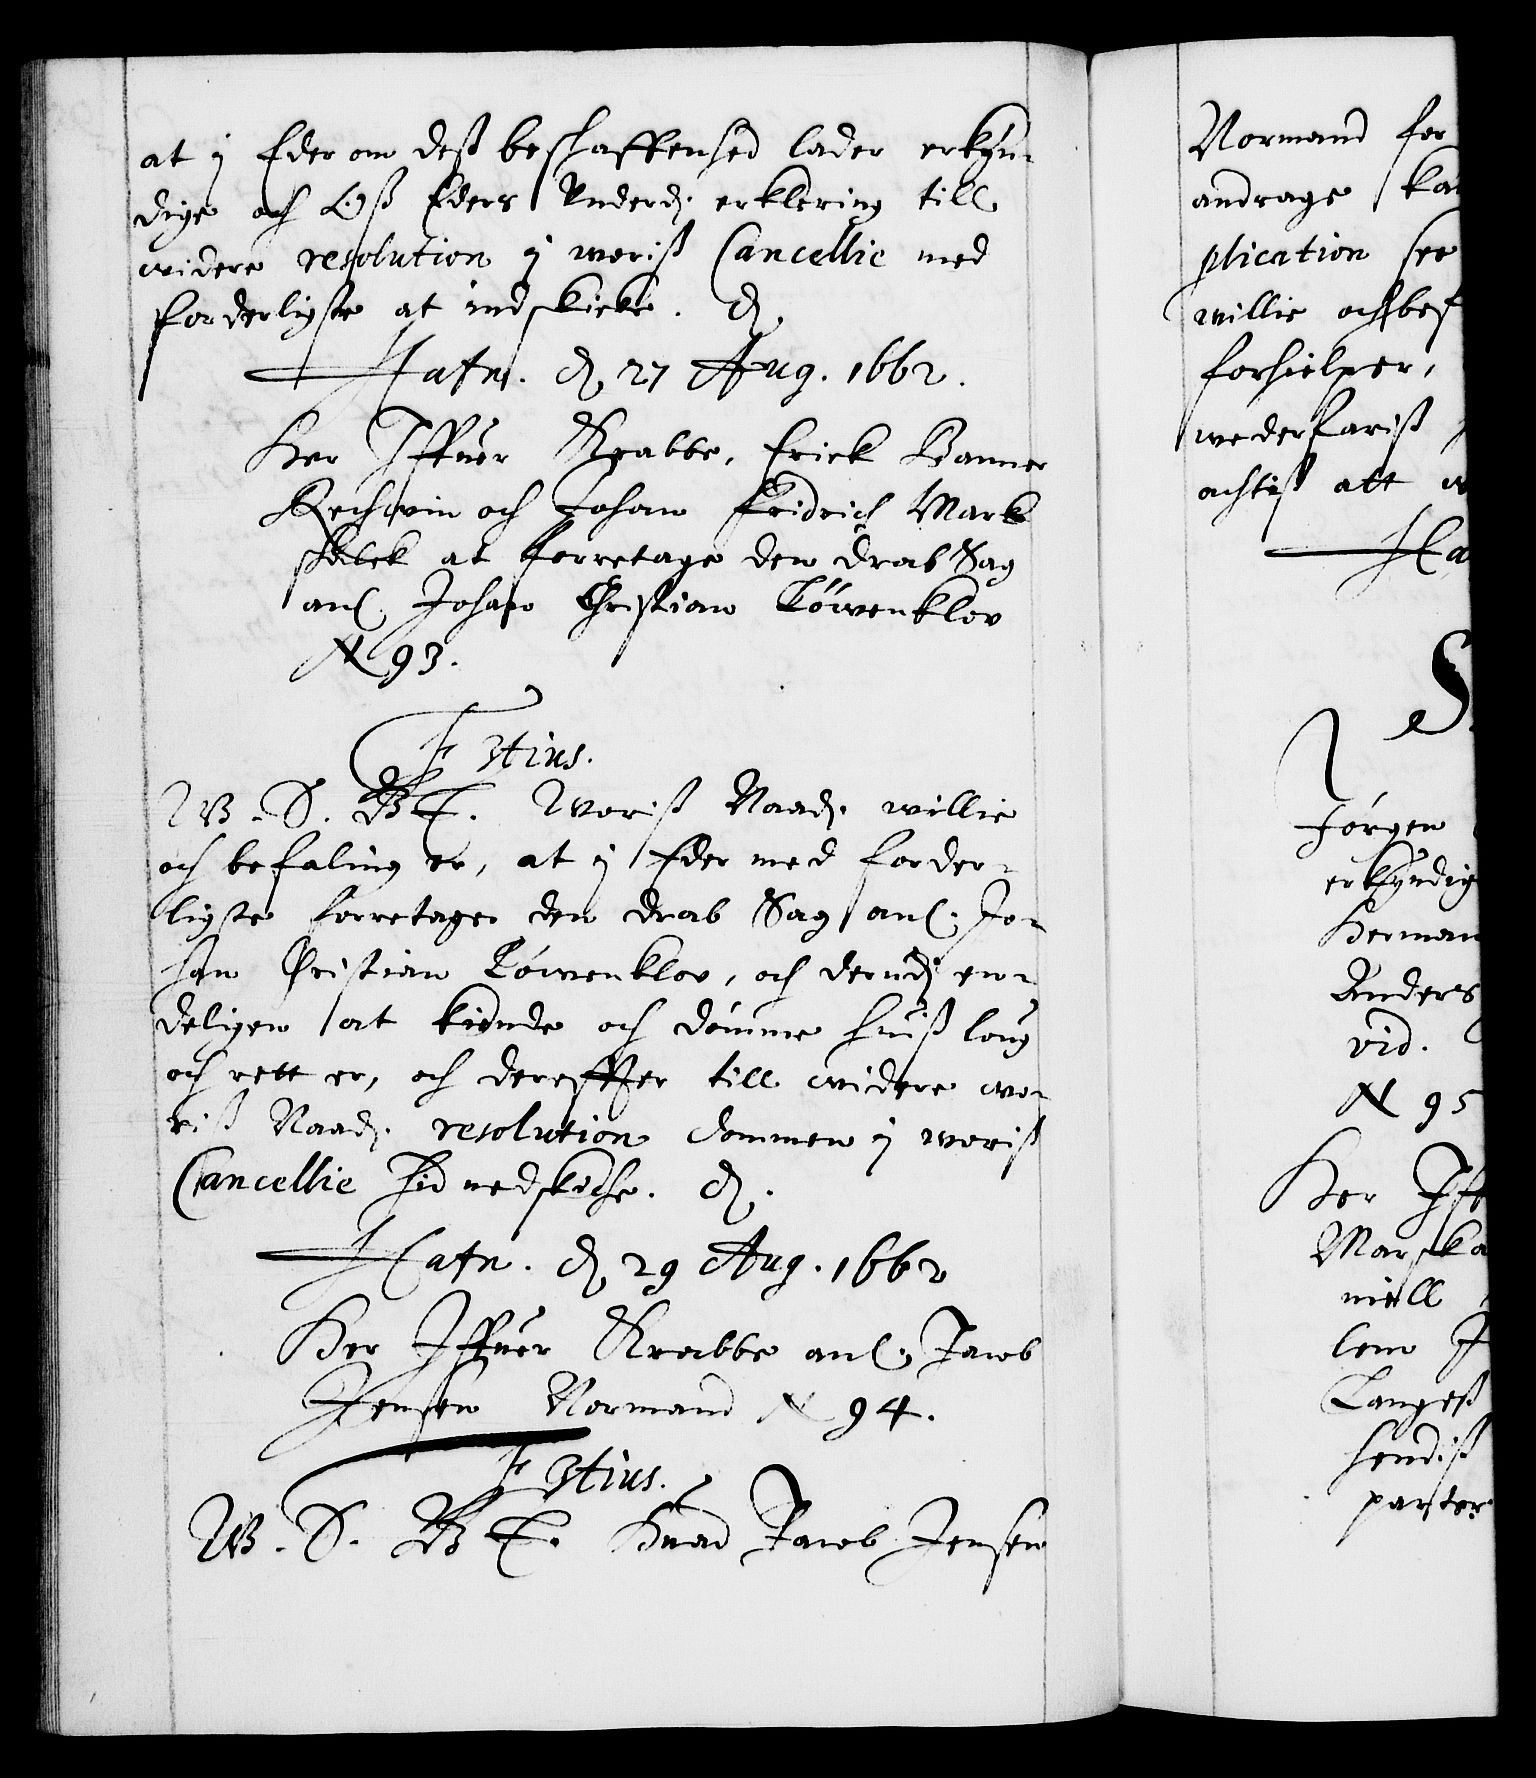 at j Eder om deß beschaffenhed lader erkyn-
dige och Oß Eders Underd: erklering till
widere resolution j woriß Cancellie med
forderligste at indskicke. d.
Hafn. d. 27 Aug. 1662.
Her Iffuer Krabbe, Erick Banner
Rechwin och Johan Fridrich Mark
schalck at forretage den drab Sag
anl. Johan Christian Löwenklov
N 93.
F 3tius.
W. S. B T. Woriß Naad: willie
och befaling er, at j Eder med forder-
ligste forretager den drab Sag anl: Jo-
han Christian Löwenklov, och derudj en-
deligen at kiende och dömme huiß loug
och rett er, och derefter till widere wo-
riß Naad: resolution dommen j woriß
Cancellie hid nedskiche. d.
Hafn. d. 29 Aug. 1662
Her Iffuer Krabbe anl: Jacob
Jensen Normand N 94.
F 3tius.
W. S. B T. Huad Jacob Jensen
Normand for
andrage
plication see
willie och bef
forhielper,
wederfariß
achtiß att
Ha
S
Jörgen
erkyndig
Herman
Anders
vid.
N 95
Her Iff
Marska
niell
lem
Langeß
hendiß
parter